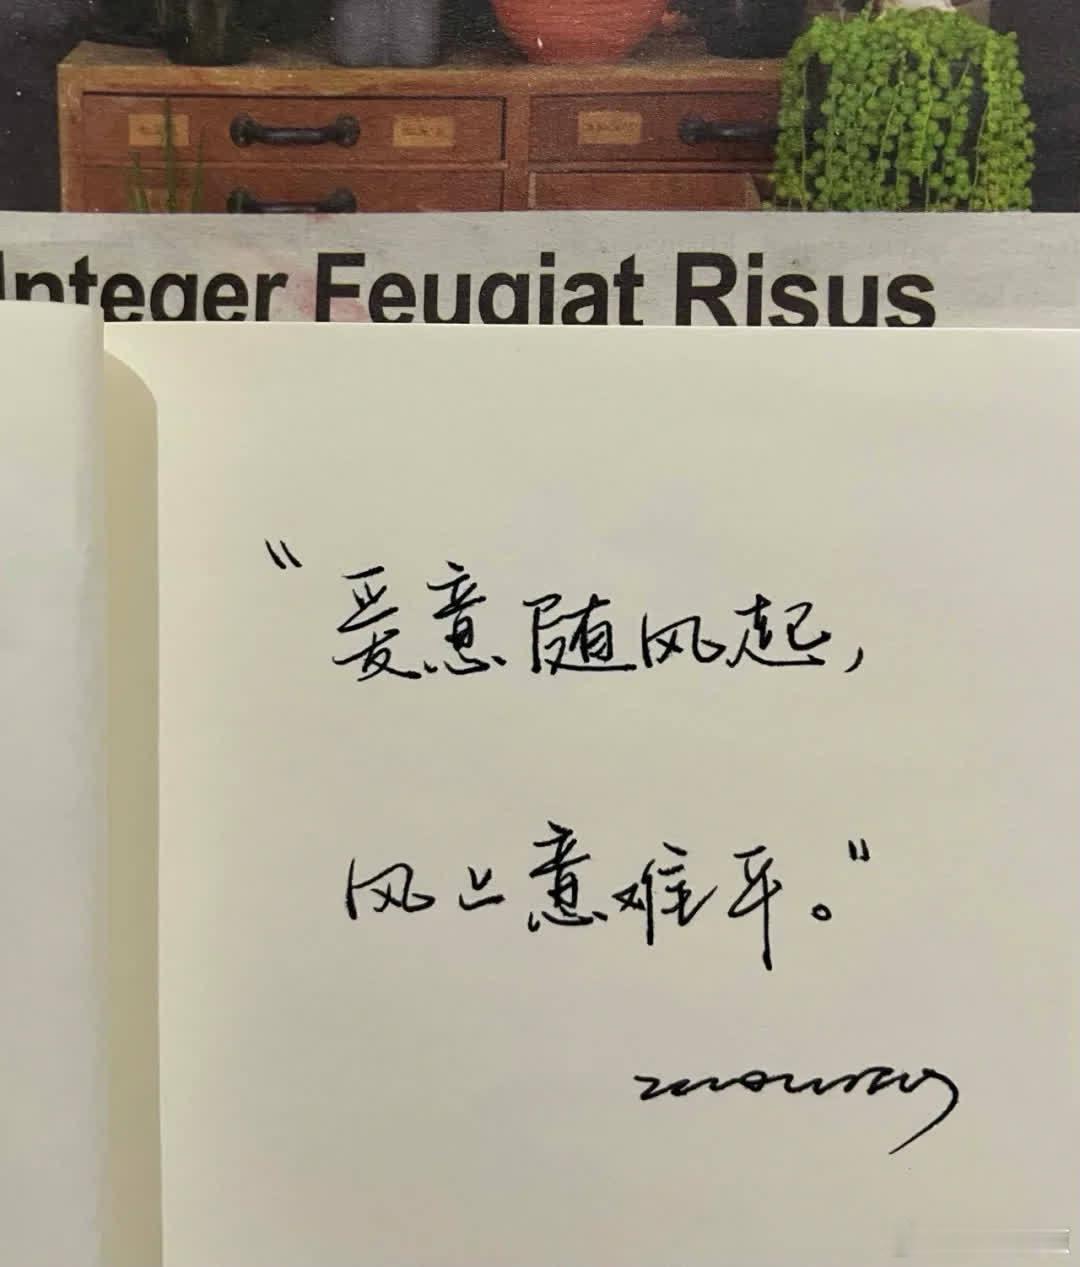 Integer Feugiat Risus
“爱意随风起，
风止意难平。”